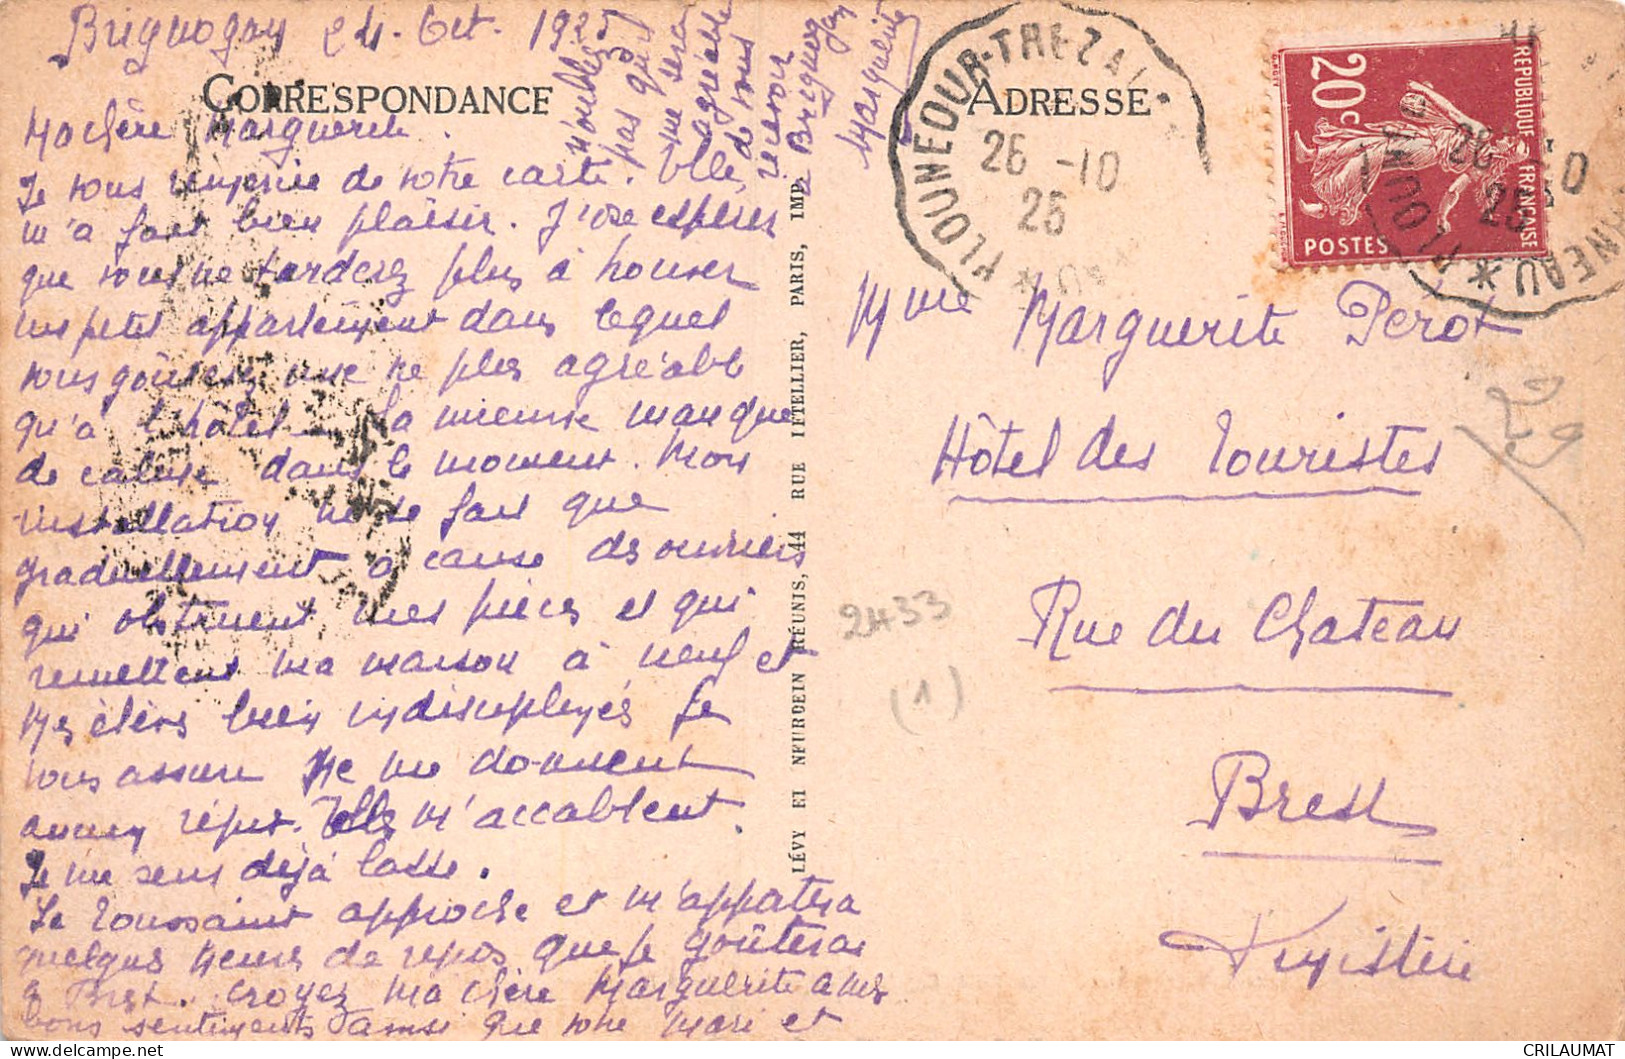 Brignogan 24 Oct. 1925
CORRESPONDANCE
Ma chère Marguerite.
Je vous remercie de votre carte. Elle
m'a fait bien plaisir. J'ose espérer
que vous ne tarderez plus à trouver
un petit appartement dans lequel
vous goûterez une vie plus agréable
qu'à l'hôtel. La mienne manque
de calme dans le moment. Mon
installation ne se fait que
graduellement à cause des ouvriers
qui obstruent mes pièces et qui
remettent ma maison à neuf et
mes élèves bien indisciplinés je
vous assure ne me donnent
aucun répit. Elles m'accablent.
Je me sens déjà lasse.
La Toussaint approche et m'apportera
quelques heures de repos que je goûterai
à Brest. Croyez ma chère Marguerite à mes
bons sentiments ainsi que votre mari et
n'oubliez
pas qu'il
me sera
agréable
de vous
recevoir
à Brignogan
Marguerite
LÉVY ET NEURDEIN RÉUNIS, 44 RUE LETELLIER, PARIS, IMP.
ADRESSE
PLOUNEOUR-TREZ A L
26 -10
25
RÉPUBLIQUE FRANÇAISE
20c
POSTES
26
25
Mme Marguerite Pérot
Hôtel des Touristes
Rue du Chateau
Brest
Finistère
2433
(1)
CRILAUMAT